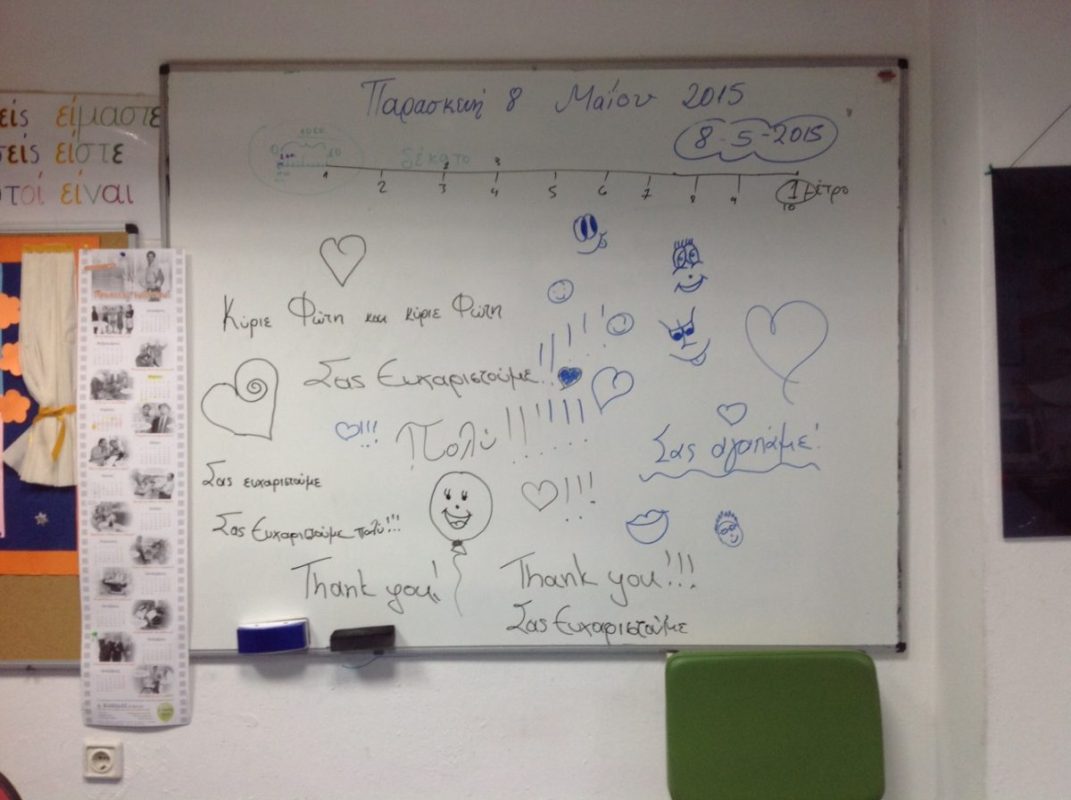 είς είμαστε
σείς είστε
τοί είναι
Παρασκευή 8 Μαΐου 2015
8-5-2015
δέκατο
1 2 3 4 5 6 7 8 9 10
1 μέτρο
Κύριε Φώτη και κύριε Φώτη
Σας Ευχαριστούμε!!
!!!!!
Πολύ!!!!!!
!!!
Σας αγαπάμε!
Σας ευχαριστούμε
!!!
Σας Ευχαριστούμε πολύ!!!
Thank you!!
Thank you!!!
Σας Ευχαριστούμε